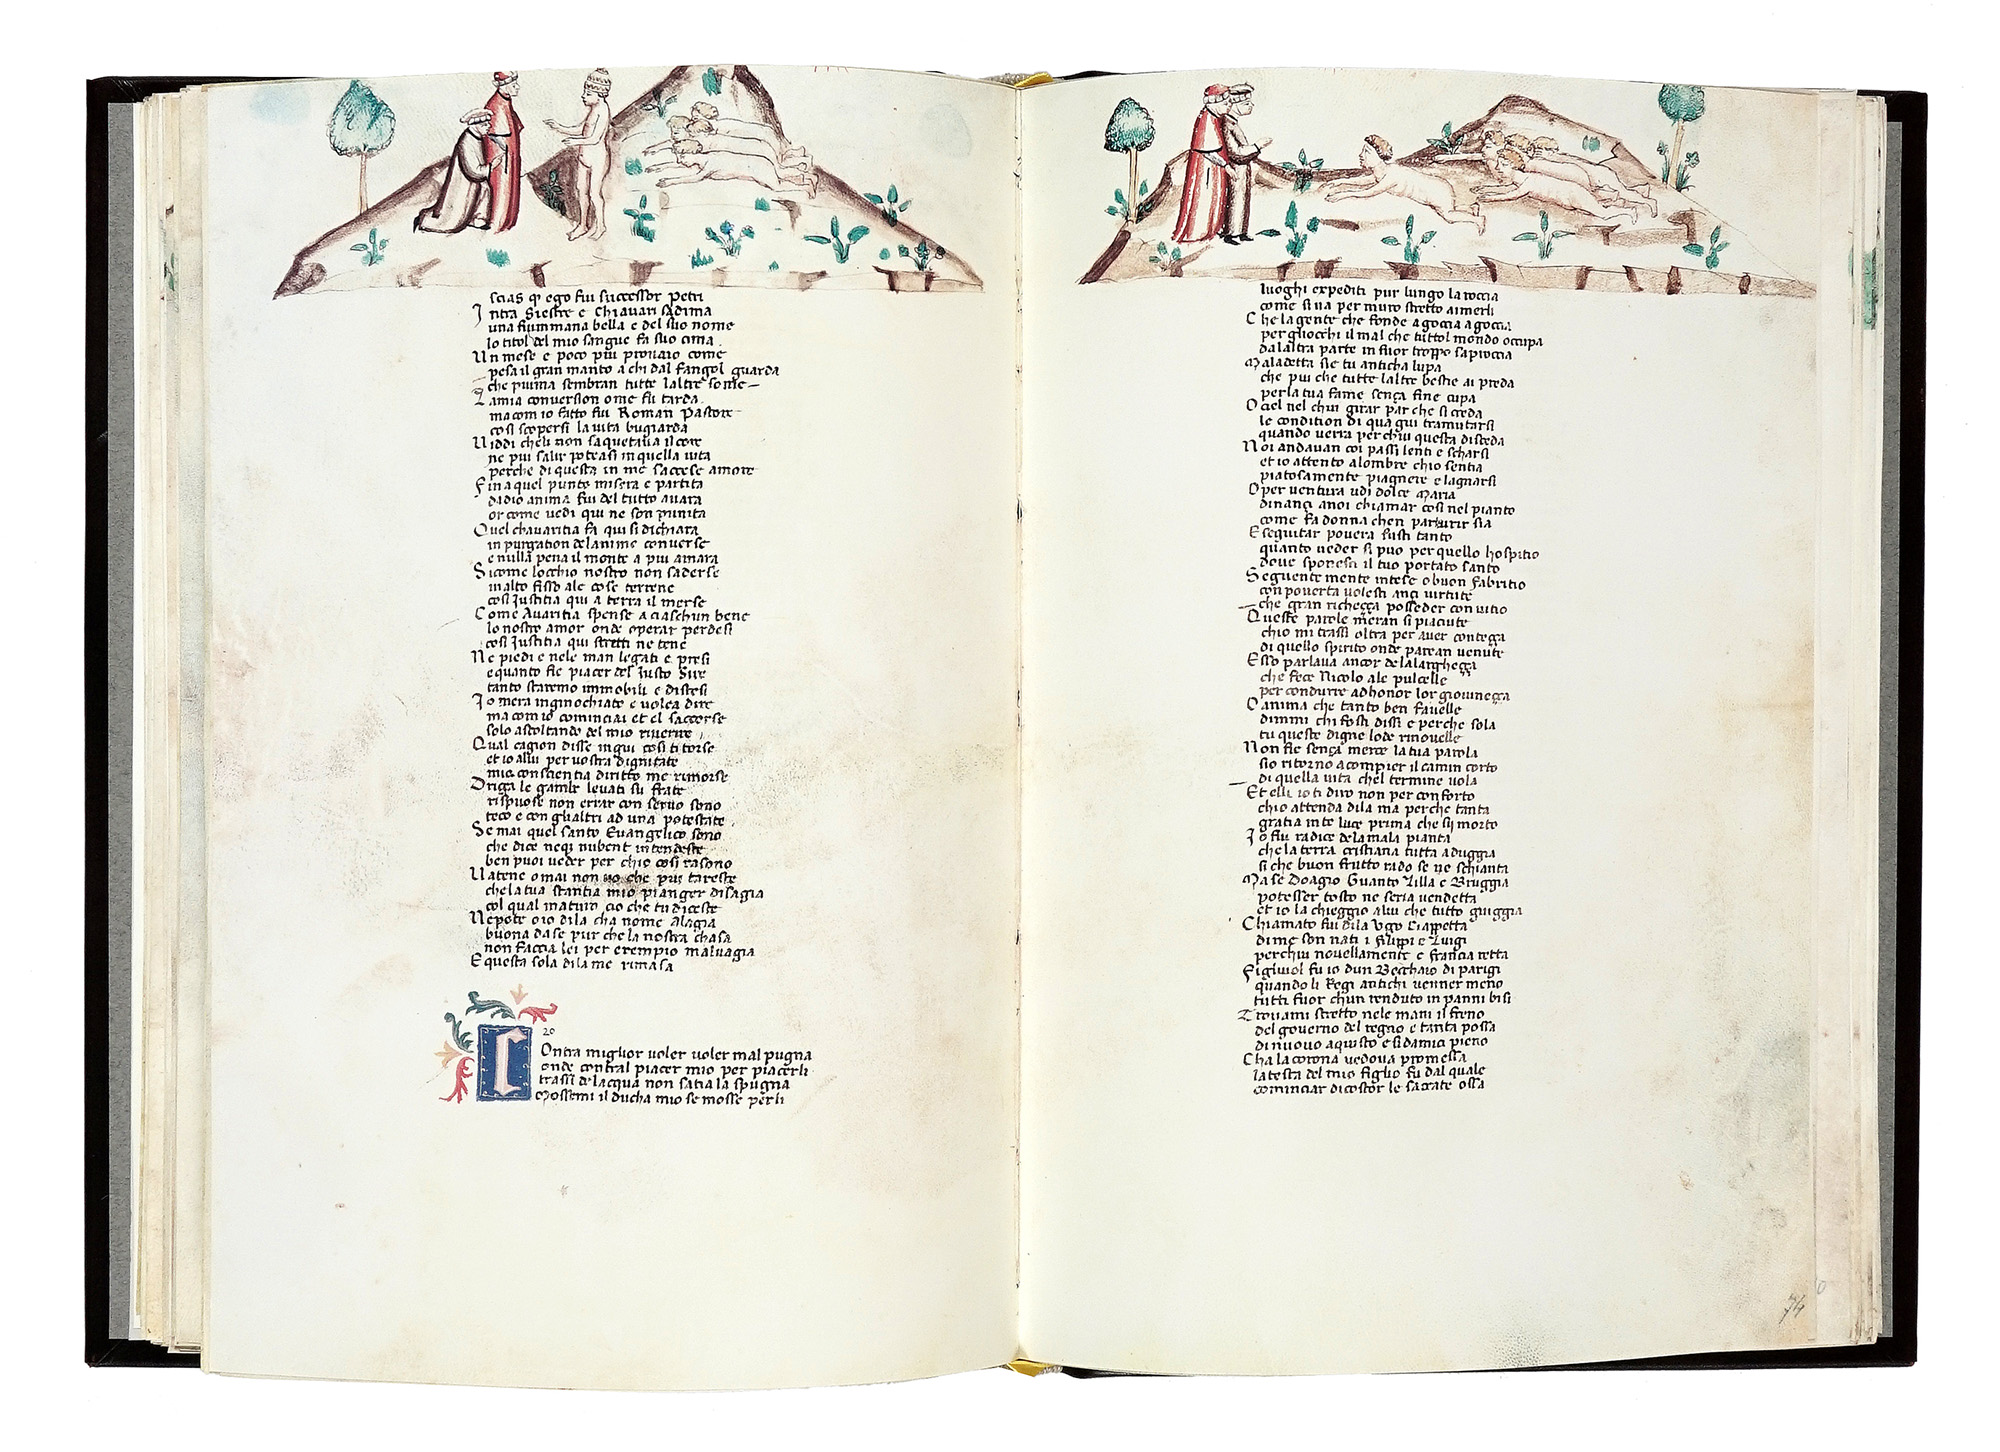 scias q ego fui successor petri
Intra Siestre e Chiavari sadima
una fiummana bella e del suo nome
lo titol del mio sangue fa suo cima
Un mese e poco piu provaio come
pesa il gran manto a chi dal fangol guarda
che piuma sembran tutte laltre some
La mia conversion ome fu tarda
ma com io fatto fui Roman Pastore
cosi scopersi la vita bugiarda
Viddi cheli non saquetava il core
ne piu salir poteasi in quella vita
perche di questa in me saccese amore
Fin a quel punto misera e partita
da dio anima fui del tutto avara
or come vedi qui ne son punita
Quel chavaritia fa qui si dichiara
in purgation delanime converse
e nulla pena il monte a piu amara
Sicome locchio nostro non saderse
inalto fisso ale cose terrene
cosi Iustitia qui a terra il merse
Come Avaritia spense a ciaschun bene
lo nostro amor onde operar perdesi
cosi Iustitia qui stretti ne tene
Ne piedi e nele man legati e presi
e quanto fie piacer del Iusto Sire
tanto staremo immobili e distesi
Io mera inginochiato e volea dire
ma com io cominciai et el saccorse
solo ascoltando del mio riverire
Qual cagion disse in qui cosi ti torse
et io allui per vostra dignitate
mia conscientia diritto me rimorse
Driga le gambe levati su frate
rispuose non errar con servo sono
teco e con glialtri ad una potestate
Se mai quel santo Evangelico sono
che dice neq nubent intendeste
ben puoi veder per chio cosi rasono
Vatene omai non vo che piu tareste
che la tua stantia mio pianger disagia
col qual maturo cio che tu diceste
Nepote o io dila cha nome Alagia
buona da se pur che la nostra chasa
non faccia lei per exempio malvagia
E questa sola dila me rimasa
20
Contra miglior voler voler mal pugna
onde contral piacer mio per piacerli
trassi de lacqua non satia la spugna
Mossemi il ducha mio se mosse perli
luoghi expediti pur lungo la roccia
come si va per muro stretto a imerli
Che la gente che fonde a goccia a goccia
per gliocchi il mal che tuttol mondo occupa
dalaltra parte in fuor troppo sapioccia
Maladetta sie tu anticha lupa
che piu che tutte laltre bestie ai preda
perla tua fame sença fine cupa
O ciel nel chui girar par che si creda
le condition di qua giu tramutarsi
quando verra per chui questa disceda
Noi andavan coi passi lenti e scharsi
et io attento alombre chio sentia
piatosamente piagnere e lagnarsi
O per ventura udi dolce Maria
dinançi anoi chiamar cosi nel pianto
come fa donna chen parturir sia
E seguitar povera fusti tanto
quanto veder si puo per quello hospitio
dove sponesti il tuo portato santo
Seguente mente intese o buon Fabritio
con poverta volesti anci virtute
che gran richeçça posseder con vitio
Queste parole meran si piaciute
chio mi trassi oltra per aver conteçça
di quello spirito onde parean venute
Esso parlava ancor de la largheçça
che fece Nicolo ale pulcelle
per condurre ad honor lor giovineçça
O anima che tanto ben favelle
dimmi chi fosti dissi e perche sola
tu queste digne lode rinovelle
Non fie sença merce la tua parola
sio ritorno a compier il camin corto
di quella vita chel termine vola
Et elli io ti diro non per conforto
chio attenda dila ma perche tanta
gratia in te luce prima che sii morto
Io fui radice dela mala pianta
che la terra cristiana tutta aduggia
si che buon frutto rado se ne schianta
Ma se Doagio Guanto Lilla e Bruggia
potesser tosto ne seria vendetta
et io la chieggio a lui che tutto giuggia
Chiamato fui dila Ugo Ciappetta
di me son nati i filippi e Luigi
per chui novellamente e francia retta
Figliuol fu io dun Beccharo di parigi
quando li Regi antichi venner meno
tutti fuor chun renduto in panni bisi
Trovami stretto nele mani il freno
del governo del regno e tanta possa
di nuovo aquisto e si damici pieno
Cha la corona vedova promessa
la testa del mio figlio fu dal quale
cominciar di costor le sacrate ossa
74